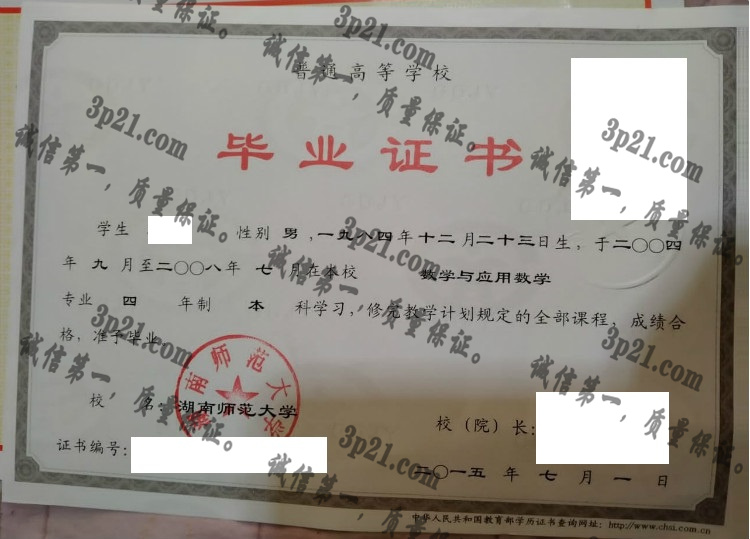 普通高等学校
毕业证书
学生 性别 男 ，一九八四年十二月二十三日生，于二〇〇四
年九月至二〇〇八年 七月在本校 数学与应用数学
专业 四 年制 本 科学习，修完教学计划规定的全部课程，成绩合
格，准予毕业。
校 名：湖南师范大学
湖南师范大学
校（院）长：
证书编号：
二〇一五年七月一日
中华人民共和国教育部学历证书查询网址：http://www.chsi.com.cn
3p21.com
诚信第一，质量保证。
3p21.com
诚信第一，质量保证。
3p21.com
诚信第一，质量保证。
3p21.com
诚信第一，质量保证。
3p21.com
诚信第一，质量保证。
3p21.com
诚信第一，质量保证。
3p21.com
诚信第一，质量保证。
3p21.com
诚信第一，质量保证。